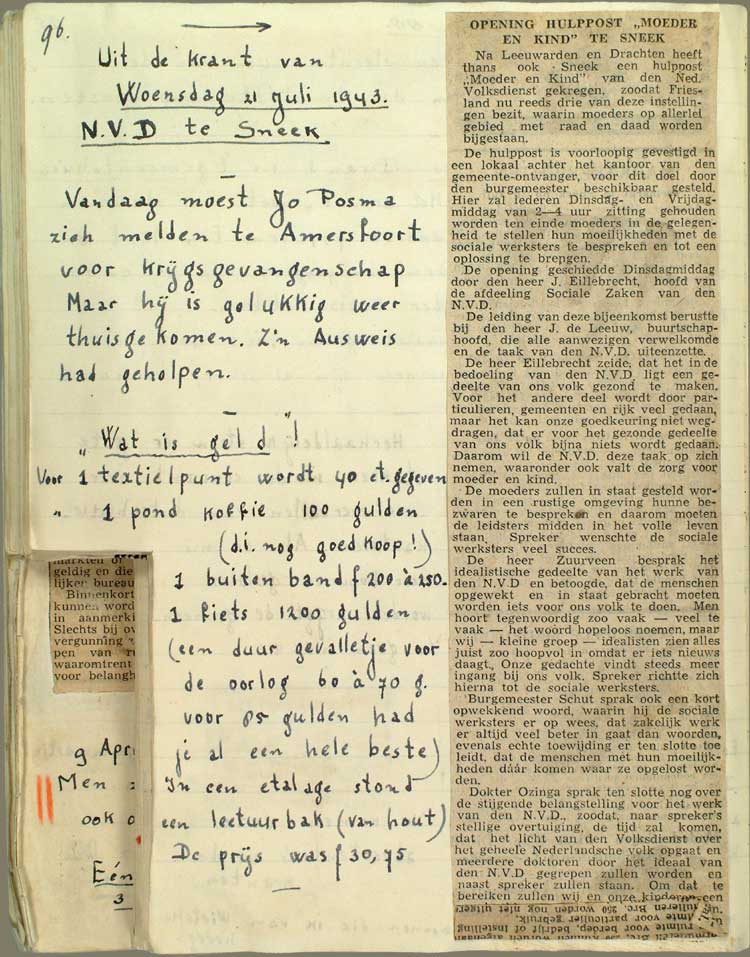 96.
Uit de krant van
Woensdag 21 Juli 1943.
N.V.D te Sneek
Vandaag moest Jo Posma
zich melden te Amersfoort
voor krijgsgevangenschap
Maar hij is gelukkig weer
thuisgekomen. Z'n Ausweis
had geholpen.
„Wat is geld"!
Voor 1 textielpunt wordt 40 ct. gegeven
" 1 pond koffie 100 gulden
(d.i. nog goedkoop!)
1 buitenband f 200 à 250.
1 fiets 1200 gulden
(een duur gevalletje voor
de oorlog 60 à 70 g.
voor 85 gulden had
je al een hele beste)
In een etalage stond
een leetuurbak (van hout)
De prijs was f 30,75
markten of
geldig en die
lijker bureau
Binnenkort
kunnen word
in aanmerki
Slechts bij ov
vergunning
pen van
waaromtrent
voor belangh
9 Apri
Men
ook
Eén
3
OPENING HULPPOST „MOEDER
EN KIND" TE SNEEK
Na Leeuwarden en Drachten heeft
thans ook Sneek een hulppost
„Moeder en Kind" van den Ned.
Volksdienst gekregen, zoodat Fries-
land nu reeds drie van deze instellin-
gen bezit, waarin moeders op allerlei
gebied met raad en daad worden
bijgestaan.
De hulppost is voorloopig gevestigd in
een lokaal achter het kantoor van den
gemeente-ontvanger, voor dit doel door
den burgemeester beschikbaar gesteld.
Hier zal iederen Dinsdag- en Vrijdag-
middag van 2—4 uur zitting gehouden
worden ten einde moeders in de gelegen-
heid te stellen hun moeilijkheden met de
sociale werksters te bespreken en tot een
oplossing te brengen.
De opening geschiedde Dinsdagmiddag
door den heer J. Eillebrecht, hoofd van
de afdeeling Sociale Zaken van den
N.V.D.
De leiding van deze bijeenkomst berustte
bij den heer J. de Leeuw, buurtschap-
hoofd, die alle aanwezigen verwelkomde
en de taak van den N.V.D. uiteenzette.
De heer Eillebrecht zeide, dat het in de
bedoeling van den N.V.D. ligt een ge-
deelte van ons volk gezond te maken.
Voor het andere deel wordt door par-
ticulieren, gemeenten en rijk veel gedaan,
maar het kan onze goedkeuring niet weg-
dragen, dat er voor het gezonde gedeelte
van ons volk bijna niets wordt gedaan.
Daarom wil de N.V.D. deze taak op zich
nemen, waaronder ook valt de zorg voor
moeder en kind.
De moeders zullen in staat gesteld wor-
den in een rustige omgeving hunne be-
zwaren te bespreken en daarom moeten
de leidsters midden in het volle leven
staan. Spreker wenschte de sociale
werksters veel succes.
De heer Zuurveen besprak het
idealistische gedeelte van het werk van
den N.V.D en betoogde, dat de menschen
opgewekt en in staat gebracht moeten
worden iets voor ons volk te doen. Men
hoort tegenwoordig zoo vaak — veel te
vaak — het woord hopeloos noemen, maar
wij — kleine groep — idealisten zien alles
juist zoo hoopvol in omdat er iets nieuws
daagt. Onze gedachte vindt steeds meer
ingang bij ons volk. Spreker richtte zich
hierna tot de sociale werksters.
Burgemeester Schut sprak ook een kort
opwekkend woord, waarin hij de sociale
werksters er op wees, dat zakelijk werk
er altijd veel beter in gaat dan woorden,
evenals echte toewijding er ten slotte toe
leidt, dat de menschen met hun moeilijk-
heden dáár komen waar ze opgelost wor-
den.
Dokter Ozinga sprak ten slotte nog over
de stijgende belangstelling voor het werk
van den N.V.D., zoodat, naar spreker's
stellige overtuiging, de tijd zal komen,
dat het licht van den Volksdienst over
het geheele Nederlandsche volk opgaat en
meerdere doktoren door het ideaal van
den N.V.D gegrepen zullen worden en
naast spreker zullen staan. Om dat te
bereiken zullen wij en onze kinderen een